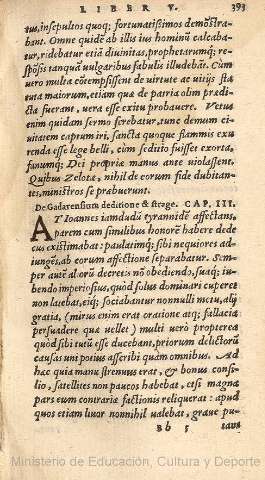 LIBER V. 393
tus, insepultos quoq; fortunatißimos demōstra-
bant. Omne quidē ab illis ius hominū calcaba-
tur, ridebatur etiā diuinitas, prophetarumq; re-
spōsis tanquā vulgaribus fabulis illudebāt. Cùm
vero multa cōtempsissent de virtute ac vitijs sta
tuta maiorum, etiam quæ de patria olim præ-
dicta fuerant, vera esse exitu probauere. Vetus
enim quidam sermo ferebatur, tunc demum ci-
uitatem captum iri, sancta quoque flammis exu
renda esse lege belli, cùm seditio fuisset exorta,
fanumq; Dei propriæ manus ante violassent.
Quibus Zelotæ, nihil de eorum fide dubitan-
tes, ministros se præbuerunt.
De Gadarensium deditione & strage. CAP. III.
AT Ioannes iamdudū tyrannidē affectans,
parem cum similibus honorē habere dede
cus existimabat: paulatimq; sibi nequiores ad-
iungēs, ab eorum affectione separabatur. Sem-
per autē aliorū decretis nō obediendo, suaq; iu-
bendo imperiosius, quòd solus dominari cuperet
non latebat, eiq; sociabantur nonnulli metu, alij
gratia, (mirus enim erat oratione atq; fallacia
persuadere quæ vellet) multi verò propterea
quòd sibi tutū esse ducebant, priorum delictorū
causas vni potius ascribi quàm omnibus. Ad
hæc quia manu strenuus erat, & bonus consi-
lio, satellites non paucos habebat, etsi magna
pars eum contrariæ factionis reliquerat: apud
quos etiam liuor nonnihil valebat, graue pu-
Bb 5 tans
Ministerio de Educación, Cultura y Deporte